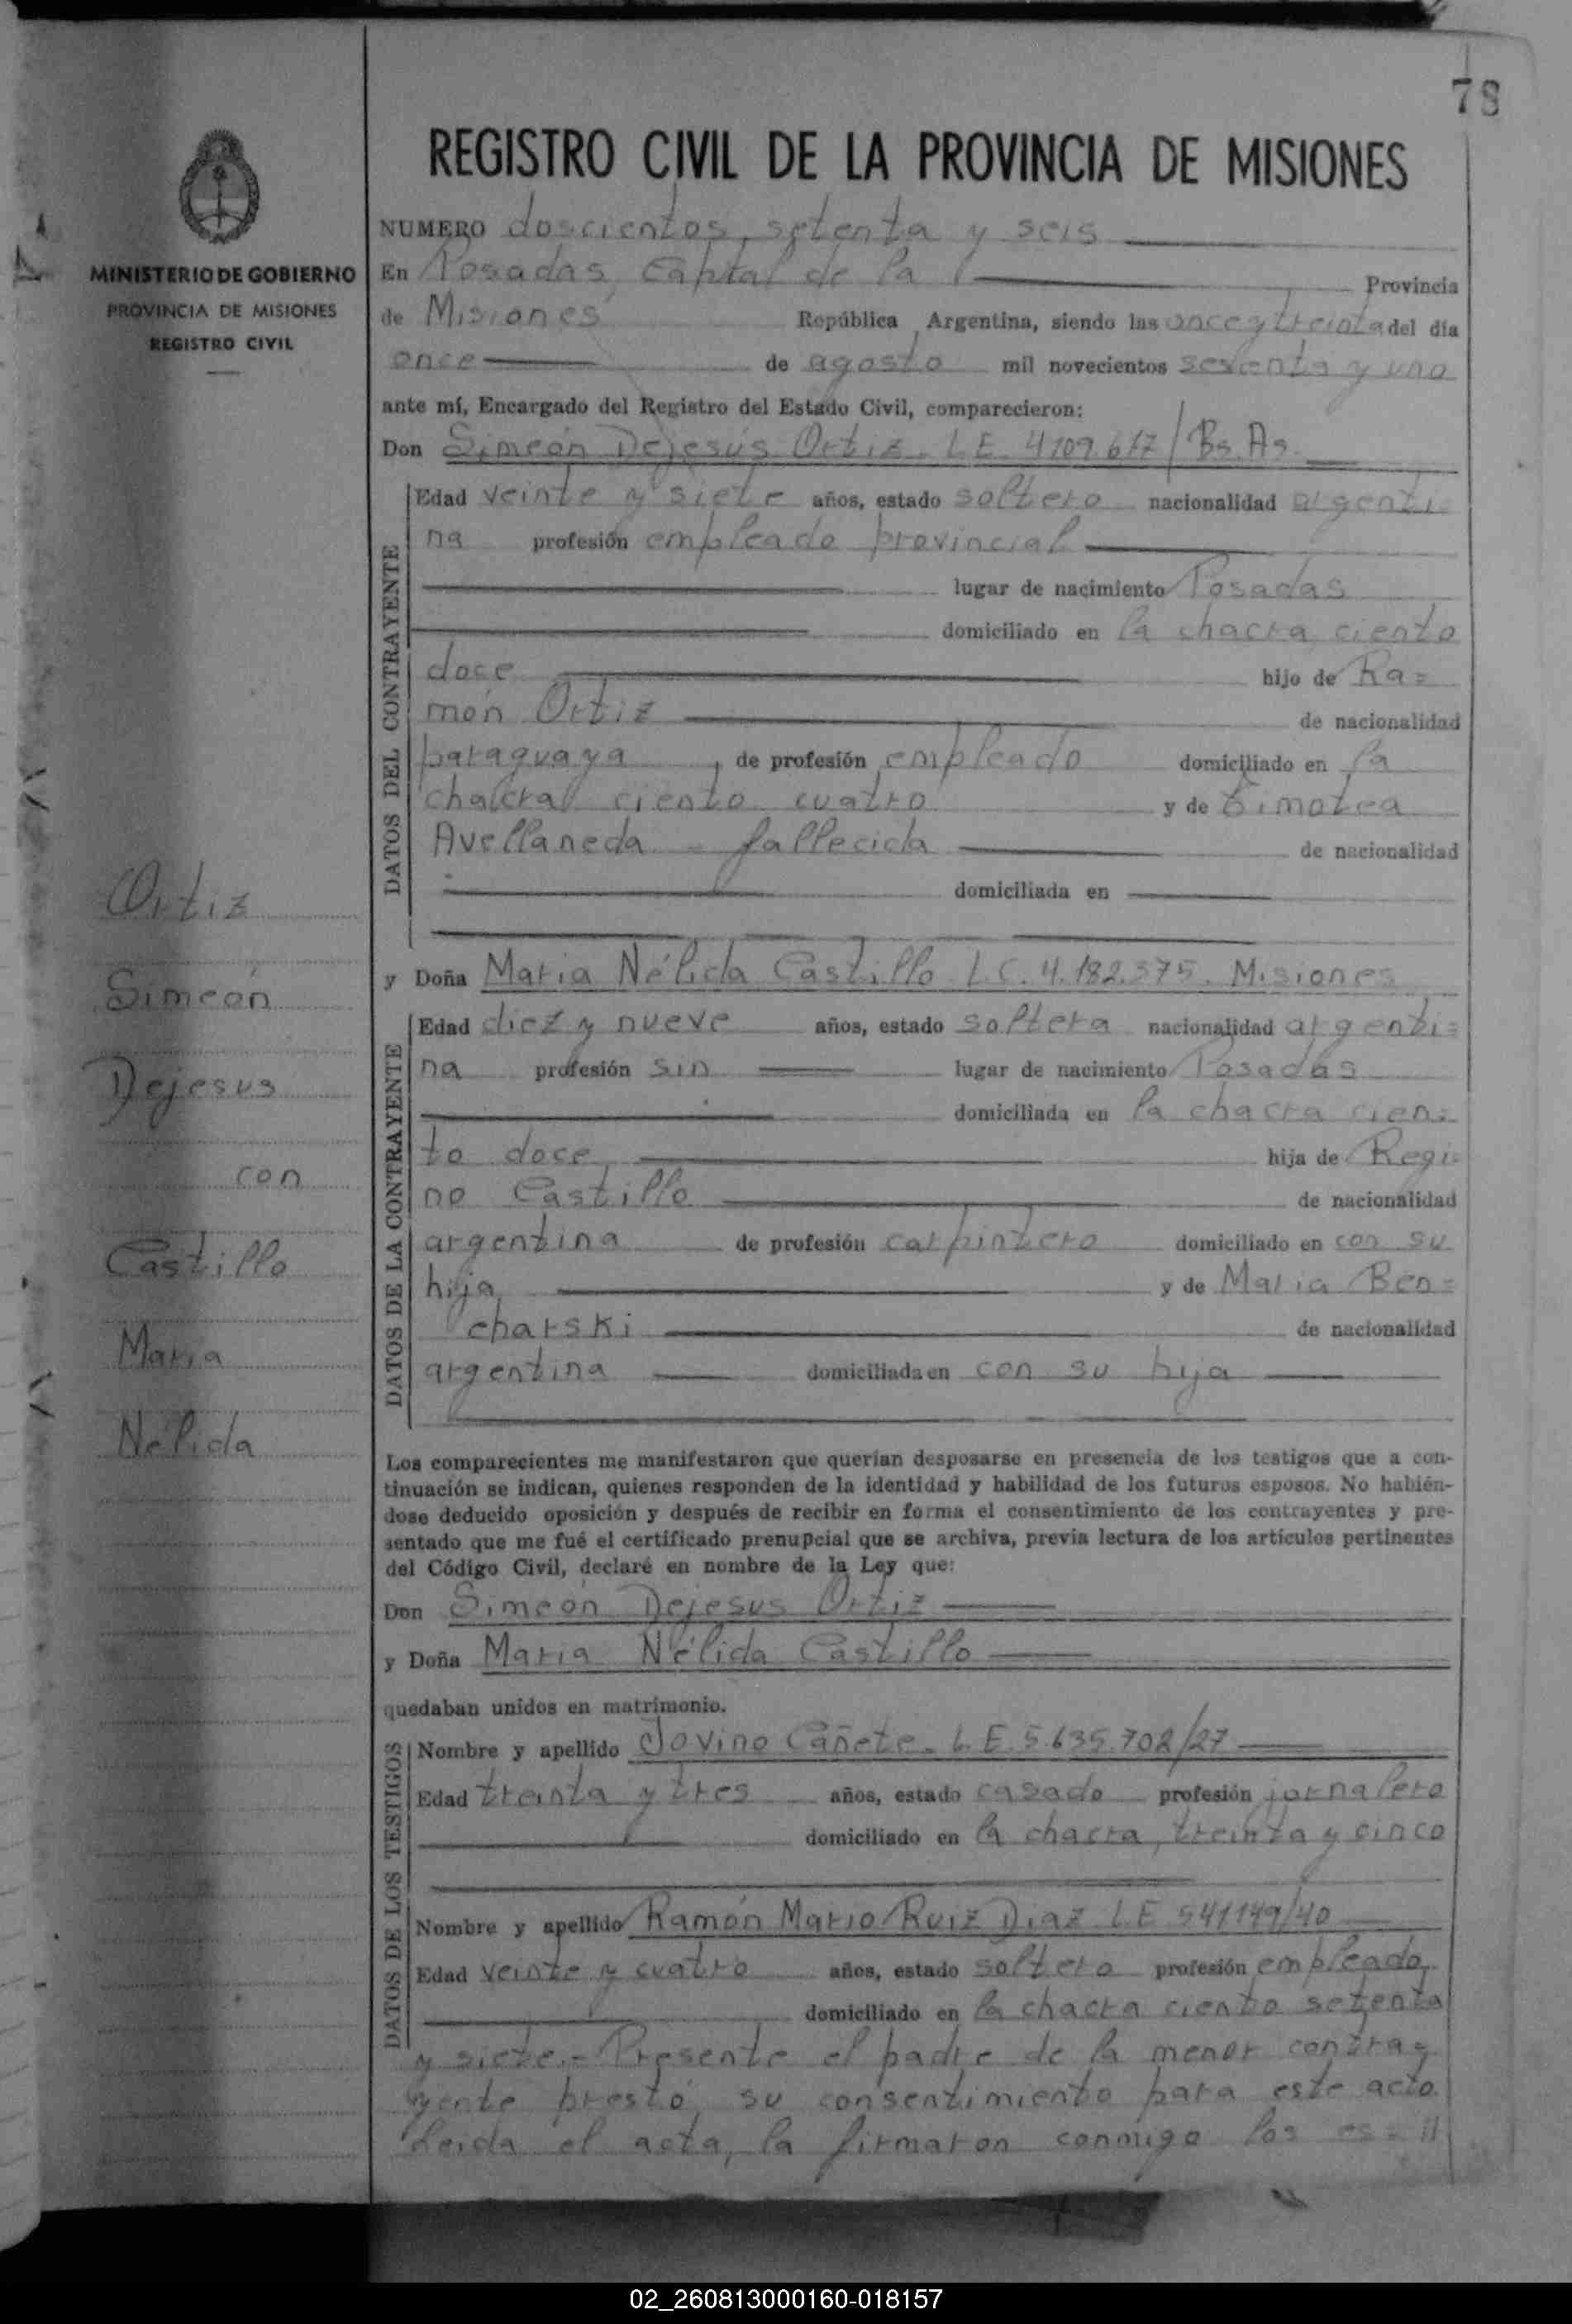 78
REGISTRO CIVIL DE LA PROVINCIA DE MISIONES
MINISTERIO DE GOBIERNO
PROVINCIA DE MISIONES
REGISTRO CIVIL
Ortiz
Simeón
Dejesus
con
Castillo
Maria
Nélida
NUMERO doscientos setenta y seis
En Posadas, Capital de la Provincia
de Misiones República Argentina, siendo las once y treinta del día
once de agosto mil novecientos sesenta y uno
ante mí, Encargado del Registro del Estado Civil, comparecieron:
Don Simeón Dejesús Ortiz - L.E. 4109.617/Bs.As.
DATOS DEL CONTRAYENTE
Edad veinte y siete años, estado soltero nacionalidad argenti=
na profesión empleado provincial
lugar de nacimiento Posadas
domiciliado en la chacra ciento
doce hijo de Ra=
món Ortiz de nacionalidad
paraguaya, de profesión empleado domiciliado en la
chacra ciento cuatro y de Timotea
Avellaneda - fallecida de nacionalidad
domiciliada en
y Doña Maria Nélida Castillo L.C. 4.182.375. Misiones
DATOS DE LA CONTRAYENTE
Edad diez y nueve años, estado soltera nacionalidad argenti=
na profesión sin lugar de nacimiento Posadas
domiciliada en la chacra cien=
to doce, hija de Regi=
no Castillo de nacionalidad
argentina de profesión carpintero domiciliado en con su
hija, y de Maria Ben=
charski de nacionalidad
argentina domiciliada en con su hija
Los comparecientes me manifestaron que querían desposarse en presencia de los testigos que a con-
tinuación se indican, quienes responden de la identidad y habilidad de los futuros esposos. No habién-
dose deducido oposición y después de recibir en forma el consentimiento de los contrayentes y pre-
sentado que me fué el certificado prenupcial que se archiva, previa lectura de los artículos pertinentes
del Código Civil, declaré en nombre de la Ley que:
Don Simeón Dejesus Ortiz
y Doña Maria Nélida Castillo
quedaban unidos en matrimonio.
DATOS DE LOS TESTIGOS
Nombre y apellido Jovino Cañete - L.E. 5.635.702/27
Edad treinta y tres años, estado casado profesión jornalero
domiciliado en la chacra treinta y cinco
Nombre y apellido Ramón Mario Ruiz Diaz L.E. 541149/40
Edad veinte y cuatro años, estado soltero profesión empleado,
domiciliado en la chacra ciento setenta
y siete.- Presente el padre de la menor contra=
yente prestó su consentimiento para este acto.
Leida el acta, la firmaron conmigo los es= //
02_260813000160-018157